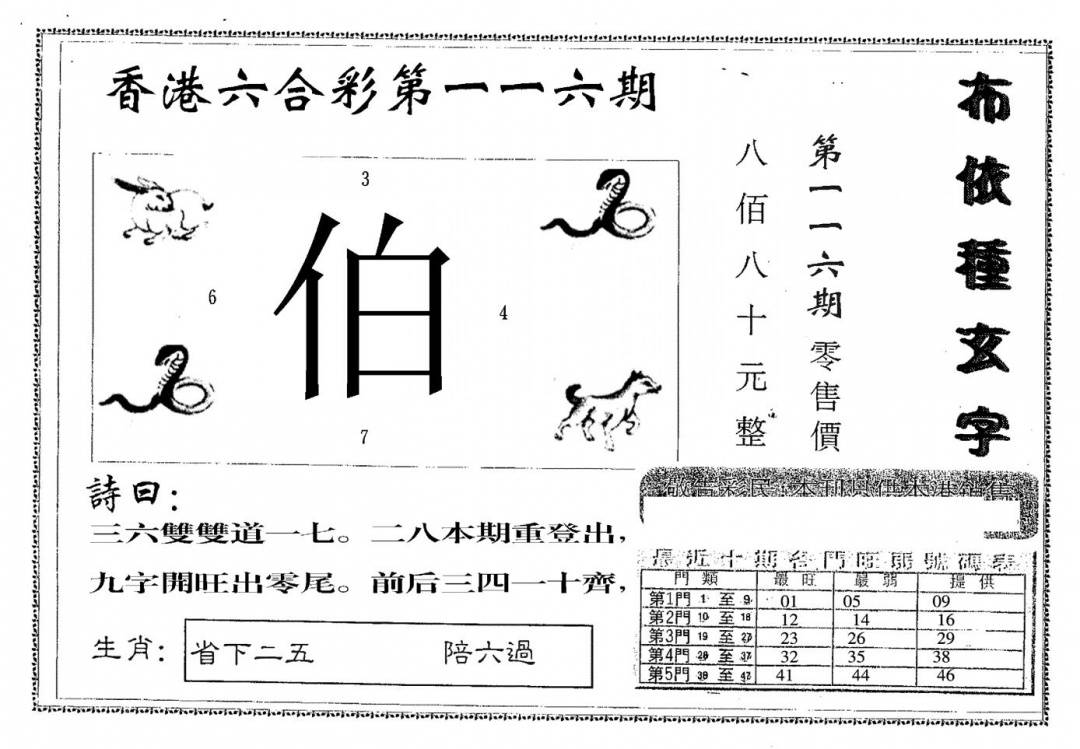 香港六合彩第一一六期
布依種玄字
第一一六期零售價
八佰八十元整
3
6
伯
4
7
詩曰：
三六雙雙道一七。二八本期重登出，
九字開旺出零尾。前后三四一十齊，
生肖：省下二五 陪六過
敬告彩民：本刊只在本港銷售
最近十期各門旺弱號碼表
門類 最旺 最弱 提供
第1門 1 至 9 01 05 09
第2門 10 至 18 12 14 16
第3門 19 至 27 23 26 29
第4門 28 至 37 32 35 38
第5門 38 至 47 41 44 46